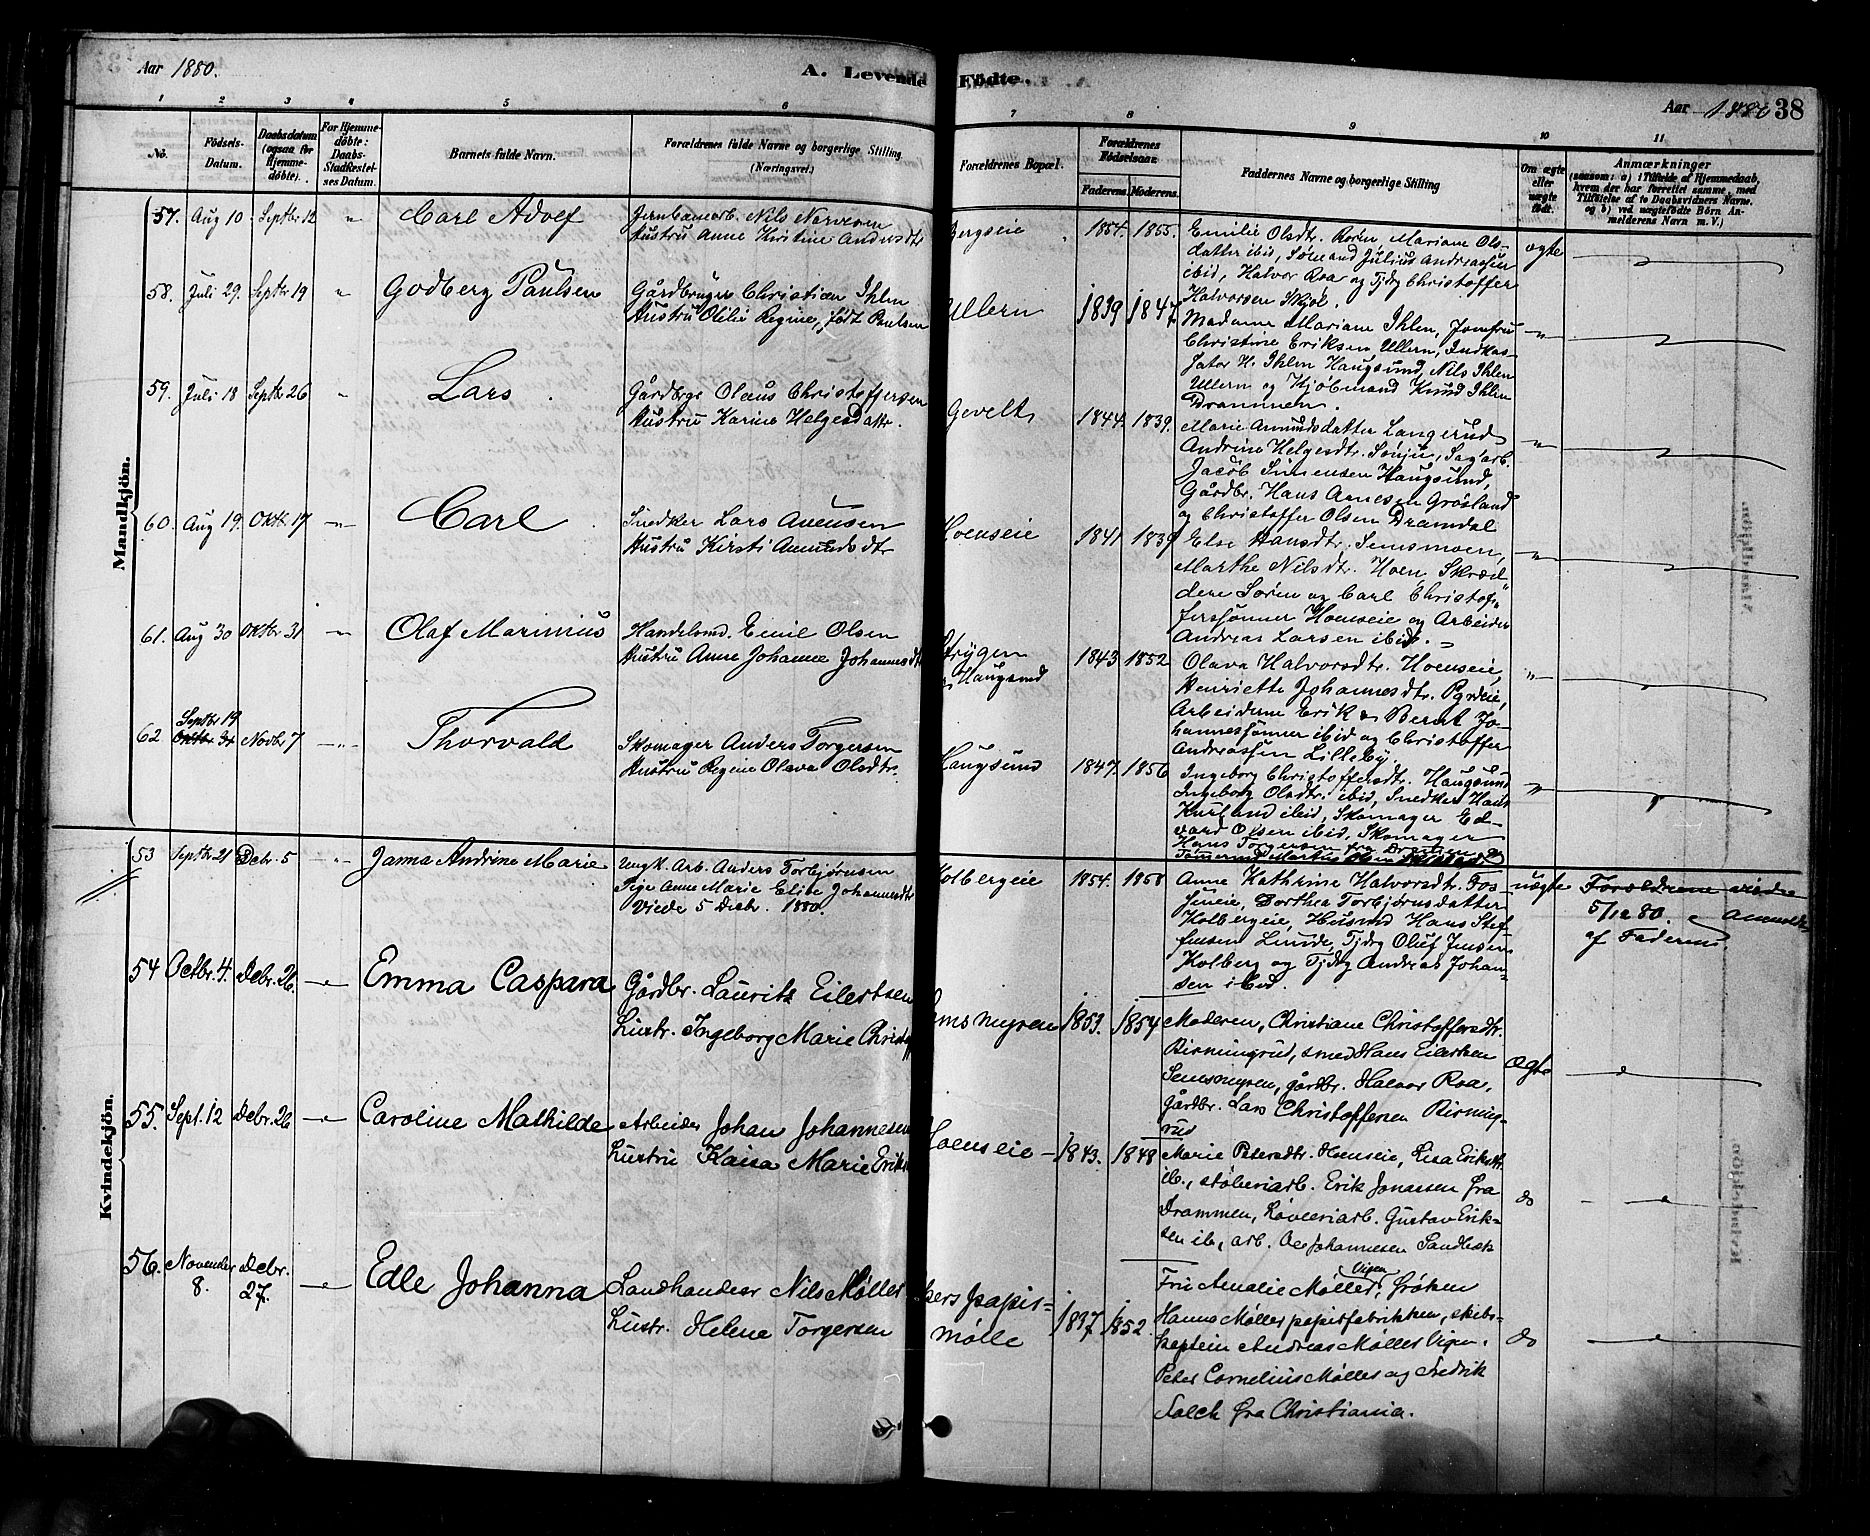 Aar 1880.
A. Levende Födte.
Aar 1880 38
1 2 3 4 5 6 7 8 9 10 11
No.
Födsels-
Datum.
Daabsdatum
(ogsaa for
Hjemme-
døbte).
For Hjemme-
døbte:
Daabs-
Stadfæstel-
ses Datum.
Barnets fulde Navn.
Forældrenes fulde Navne og borgerlige Stilling
(Næringsvei.)
Forældrenes Bopæl.
Forældrenes
Födselsaar.
Faderens. Moderens.
Faddernes Navne og borgerlige Stilling
Om ægte
eller
uægte
født.
Anmærkninger
(saasom: a) i Tilfælde af Hjemmedaab,
hvem der har forrettet samme, med
Tilføielse af to Daabsvidners Navne.
og b) ved uægtefödte Börn An-
melderens Navn m. V.)
Mandkjön.
57. Aug 10 Septbr 12 " Carl Adolf
Jernbanearb. Nils Narvesen
Hustru Anne Kirstine Andersdtr
Bergseie 1854. 1855.
Emilie Olsdtr. Roren, Mariane Ols-
datter ibid, Sömand Julius Andreassen
ibid, Halvor Roa og Tjdrg Christoffer
Halvorsen Skjöl.
ægte
58. Juli 29. Septbr 19 " Godberg Paulsen
Gårdbruger Christian Ihlen
Hustru Otilie Regine, født Paulsen
Ullern 1839 1847
Madame Mariane Ihlen, Jomfru
Christine Eriksen Ullern, Indkas-
sator H. Ihlen Haugsund, Nils Ihlen
Ullern og Kjöbmand Knud Ihlen
Drammen.
"
59. Juli 18 Septbr 26 " Lars
Gårdbrgr Olaus Christoffersen
Hustru Karine Helgesdattr.
Gevelt 1844. 1839.
Marie Amundsdatter Langerud
Andrine Helgesdtr. Sönju, Sagarb.
Jacob Simensen Haugsund,
Gårdbr. Hans Arnesen Gråsland
og Christoffer Olsen Dramdal
"
60. Aug 19. Oktbr 17 " Carl
Snedker Lars Avensen
Hustru Kirsti Amundsdtr
Hoenseie 1841 1839
Else Hansdtr. Semsmoen,
Marthe Nilsdtr. Hoen, Skræd-
dere Sören og Carl Christof-
fersönner Hoenseie og Arbeider
Andreas Larsen ibid.
"
61. Aug 30 Oktbr 31 " Olaf Marinius
Handelsmd. Emil Olsen
Hustru Anne Johanne Johannesdtr
Strygen
Haugsund 1843 1852
Olava Halvorsdtr. Hoenseie,
Henriette Johannesdtr.
Arbeiderne Erik & Bernt Jo-
hannessönner ibid og Christoffer
Andreassen Lilleby.
"
62. Septbr 19
Oktbr 31 Novbr 7 Thorvald
Skomager Anders Torgersen
Hustru Regine Olava Olsdtr.
Haugsund 1847. 1856
Ingeborg Christoffersdtr. Haugsund
Ingeborg Olsdtr. ibid, Snedker Hans
Kurland ibid, Skomager Ed-
vard Olsen ibid, Skomager
Hans Torgersen fra Drammen
"
Kvindekjön.
53 Septbr 21 Debr. 5 Janna Andrine Marie
Ungk. Arb. Anders Torbjörnsen
Pige Anne Marie Elise Johannesdtr
Viede 5 Decbr. 1880.
Kolbergeie 1854. 1858
Anne Kathrine Halvorsdtr. Fos-
seneie, Dorthea Torbjörnsdatter
Kolbergeie, Husmd Hans Stef-
fensen Lunde, Tjdrg Oluf Jensen
Kolberg og Tjdrg Andreas Johan-
sen ibid.
uægte
Forældrene viede
5/12 80. Anmeldt
af Faderen.
54 Octbr. 4. Debr. 26 Emma Caspara
Gårdbr. Laurits Eilertsen
Hustr. Ingeborg Marie Christoff
Semsmyren 1853. 1854
Moderen, Christiane Christoffersdtr.
Birmingrud, smed Hans Eilertsen
Semsmyren, gårdbr. Halvor Roa,
gårdbr. Lars Christoffersen Birming-
rud
Ægte
55. Sept. 12 Debr. 26 Caroline Mathilde
Arbeider Johan Johannesen
Hustru Kaisa Marie Eriks
Hoenseie 1843. 1848
Marie Petersdtr. Hoenseie, Lisa Eriksdtr
ib., støberiarb. Erik Jonassen fra
Drammen, Løveeriarb. Gustav Erik-
sen ib., arb. Ole Johannesen Sandbæk
do
56. November
8. Debr.
27. Edle Johanna
Landhandler Nils Møller
Hustr. Helene Torgersen
Ekers papir-
mølle 1837 1852.
Fru Amalie Møller, Vigen, frøken
Hanna Møller papirfabrikken, skibs-
kaptein Andreas Møller Vigen.
Peter Cornelius Møller og Fredrik
Falck fra Christiania.
do